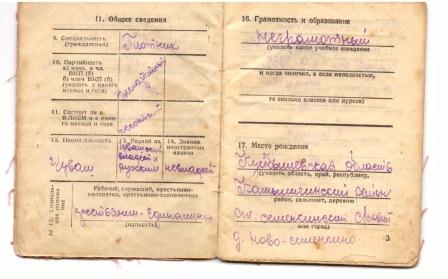 11. Общие сведения
9. Специальность
(гражданская)
Плотник
10. Партийность
а) канд. и чл.
ВКП (б)
б) член ВКП (б)
(указать с какого
месяца и года)
беспартийный
11. Состоит ли в
ВЛКСМ и с како-
го месяца и года
не состоит
12. Национальность
Чуваш
13. Родной яз.
чувашский
владеет и
русским
14. Знание
иностранных
языков
не владеет
15. Социаль-
ное положе-
ние
Рабочий, служащий, крестьянин-
колхозник, крестьянин-единоличник
крестьянин-единоличник
(написать)
2
16. Грамотность и образование
неграмотный
(указать какое учебное заведение
и когда окончил, а если неполностью,
то сколько классов или курсов)
17. Место рождения
Куйбышевская область
(указать область, край, республику,
район, сельсовет, деревню
или город)
д. Ново-семенкино
3